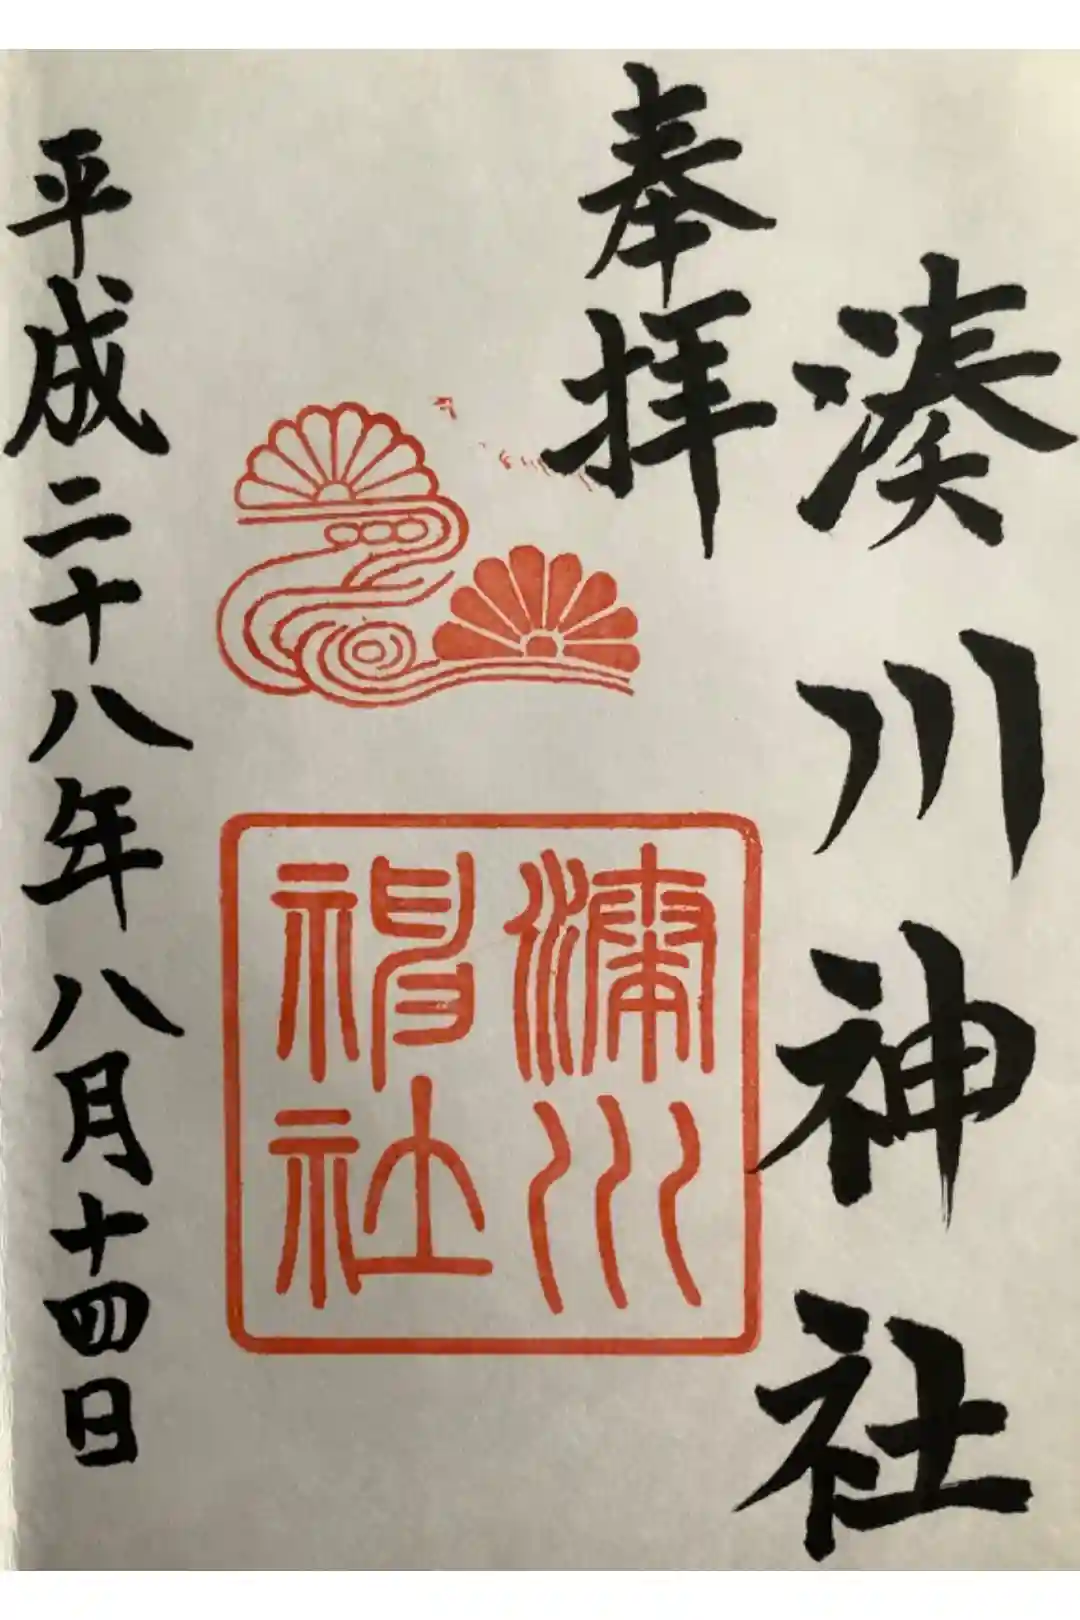 湊川神社
奉拝
湊川
神社
平成二十八年八月十四日